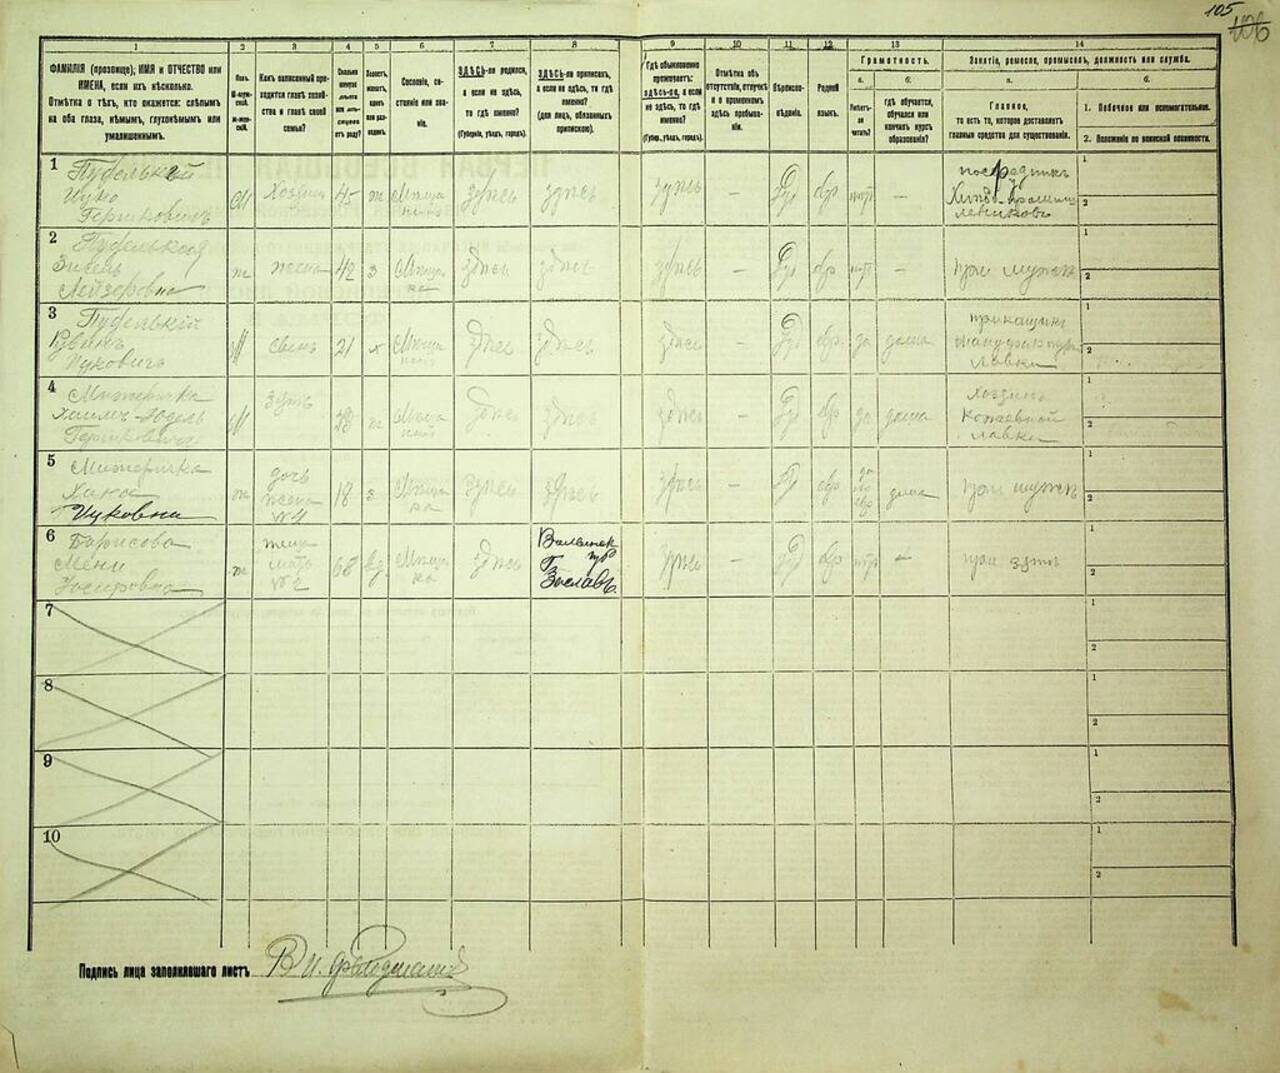 105
106
1 2 3 4 5 6 7 8 9 10 11 12 13 14
ФАМИЛІЯ (прозвище); ИМЯ и ОТЧЕСТВО или
ИМЕНА, если ихъ нѣсколько.
Отмѣтка о тѣхъ, кто окажется: слѣпымъ
на оба глаза, нѣмымъ, глухонѣмымъ или
умалишеннымъ.
Полъ.
М-мужской.
Ж-женскій.
Какъ записанный приходится
главѣ хозяйства
и главѣ своей
семьи?
Сколько
минуло
лѣтъ
или мѣсяцевъ
отъ роду?
Холостъ,
женатъ,
вдовъ
или разведенъ.
Сословіе, состояніе
или званіе.
ЗДѢСЬ-ли родился,
а если не здѣсь,
то гдѣ именно?
(Губернія, уѣздъ, городъ).
ЗДѢСЬ-ли приписанъ,
а если не здѣсь, то гдѣ
именно?
(для лицъ, обязанныхъ
припискою).
Гдѣ обыкновенно
проживаетъ:
здѣсь-ли, а если
не здѣсь, то гдѣ
именно?
(Губерн., уѣздъ, городъ).
Отмѣтка объ
отсутствіи, отлучкѣ
и о временномъ
здѣсь пребываніи.
Вѣроисповѣданіе.
Родной
языкъ.
Грамотность.
а.
Умѣетъ-ли
читать?
б.
гдѣ обучается,
обучался или
кончилъ курсъ
образованія?
Занятіе, ремесло, промыселъ, должность или служба.
а.
Главное,
то есть то, которое доставляетъ
главныя средства для существованія.
б.
1. Побочное или вспомогательное.
2. Положеніе по воинской повинности.
1
Пуделькій
Цуко
Гершковичъ
М Хозяинъ 45 ж Мѣща
нинъ здѣсь здѣсь здѣсь — Іуд евр нѣтъ —
посредникъ
1
2
2
Пуделькая
Зисель
Лейзеровна
ж жена 42 з Мѣщан
ка здѣсь здѣсь здѣсь — Іуд евр нѣтъ — при мужѣ
1
2
3
Пуделькій
Цуковичъ
М сынъ 21 х Мѣща
нинъ здѣсь здѣсь здѣсь — Іуд евр да дома
прикащикъ
лавки
1
2
4
Гершковичъ
М зять 28 ж Мѣща
нинъ здѣсь здѣсь здѣсь — Іуд евр да дома
Хозяинъ
Кожевной
лавки
1
2
5
Хана
Цуковна
ж дочь
жена
№4
18 з Мѣща
ка здѣсь здѣсь здѣсь — Іуд евр да
по
евр
дома при мужѣ
1
2
6
Борисова
Мени
Іосифовна
ж теща
мать
№2
68 вд Мѣща
ка здѣсь
Волынск
губ
Г.
Заславъ.
здѣсь — Іуд евр нѣтъ — при зятѣ
1
2
7
1
2
8
1
2
9
1
2
10
1
2
Подпись лица заполнившаго листъ